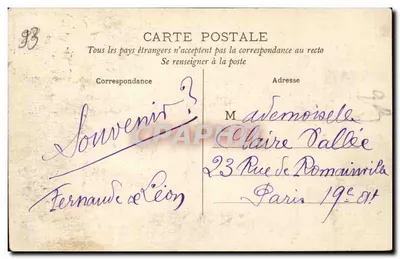 93
CARTE POSTALE
Tous les pays étrangers n'acceptent pas la correspondance au recto
Se renseigner à la poste
Correspondance
Souvenir ?
Fernande & Léon
Adresse
Mademoiselle
Claire Vallée
23 Rue de Romainville
Paris 19e Art